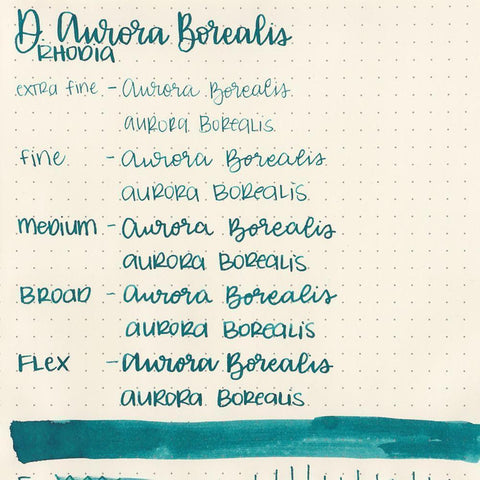 D. Aurora Borealis
RHODIA
extra fine - Aurora Borealis
aurora Borealis
fine - Aurora Borealis
aurora Borealis
Medium - Aurora Borealis
aurora Borealis
Broad - Aurora Borealis
aurora Borealis
Flex - Aurora Borealis
aurora Borealis